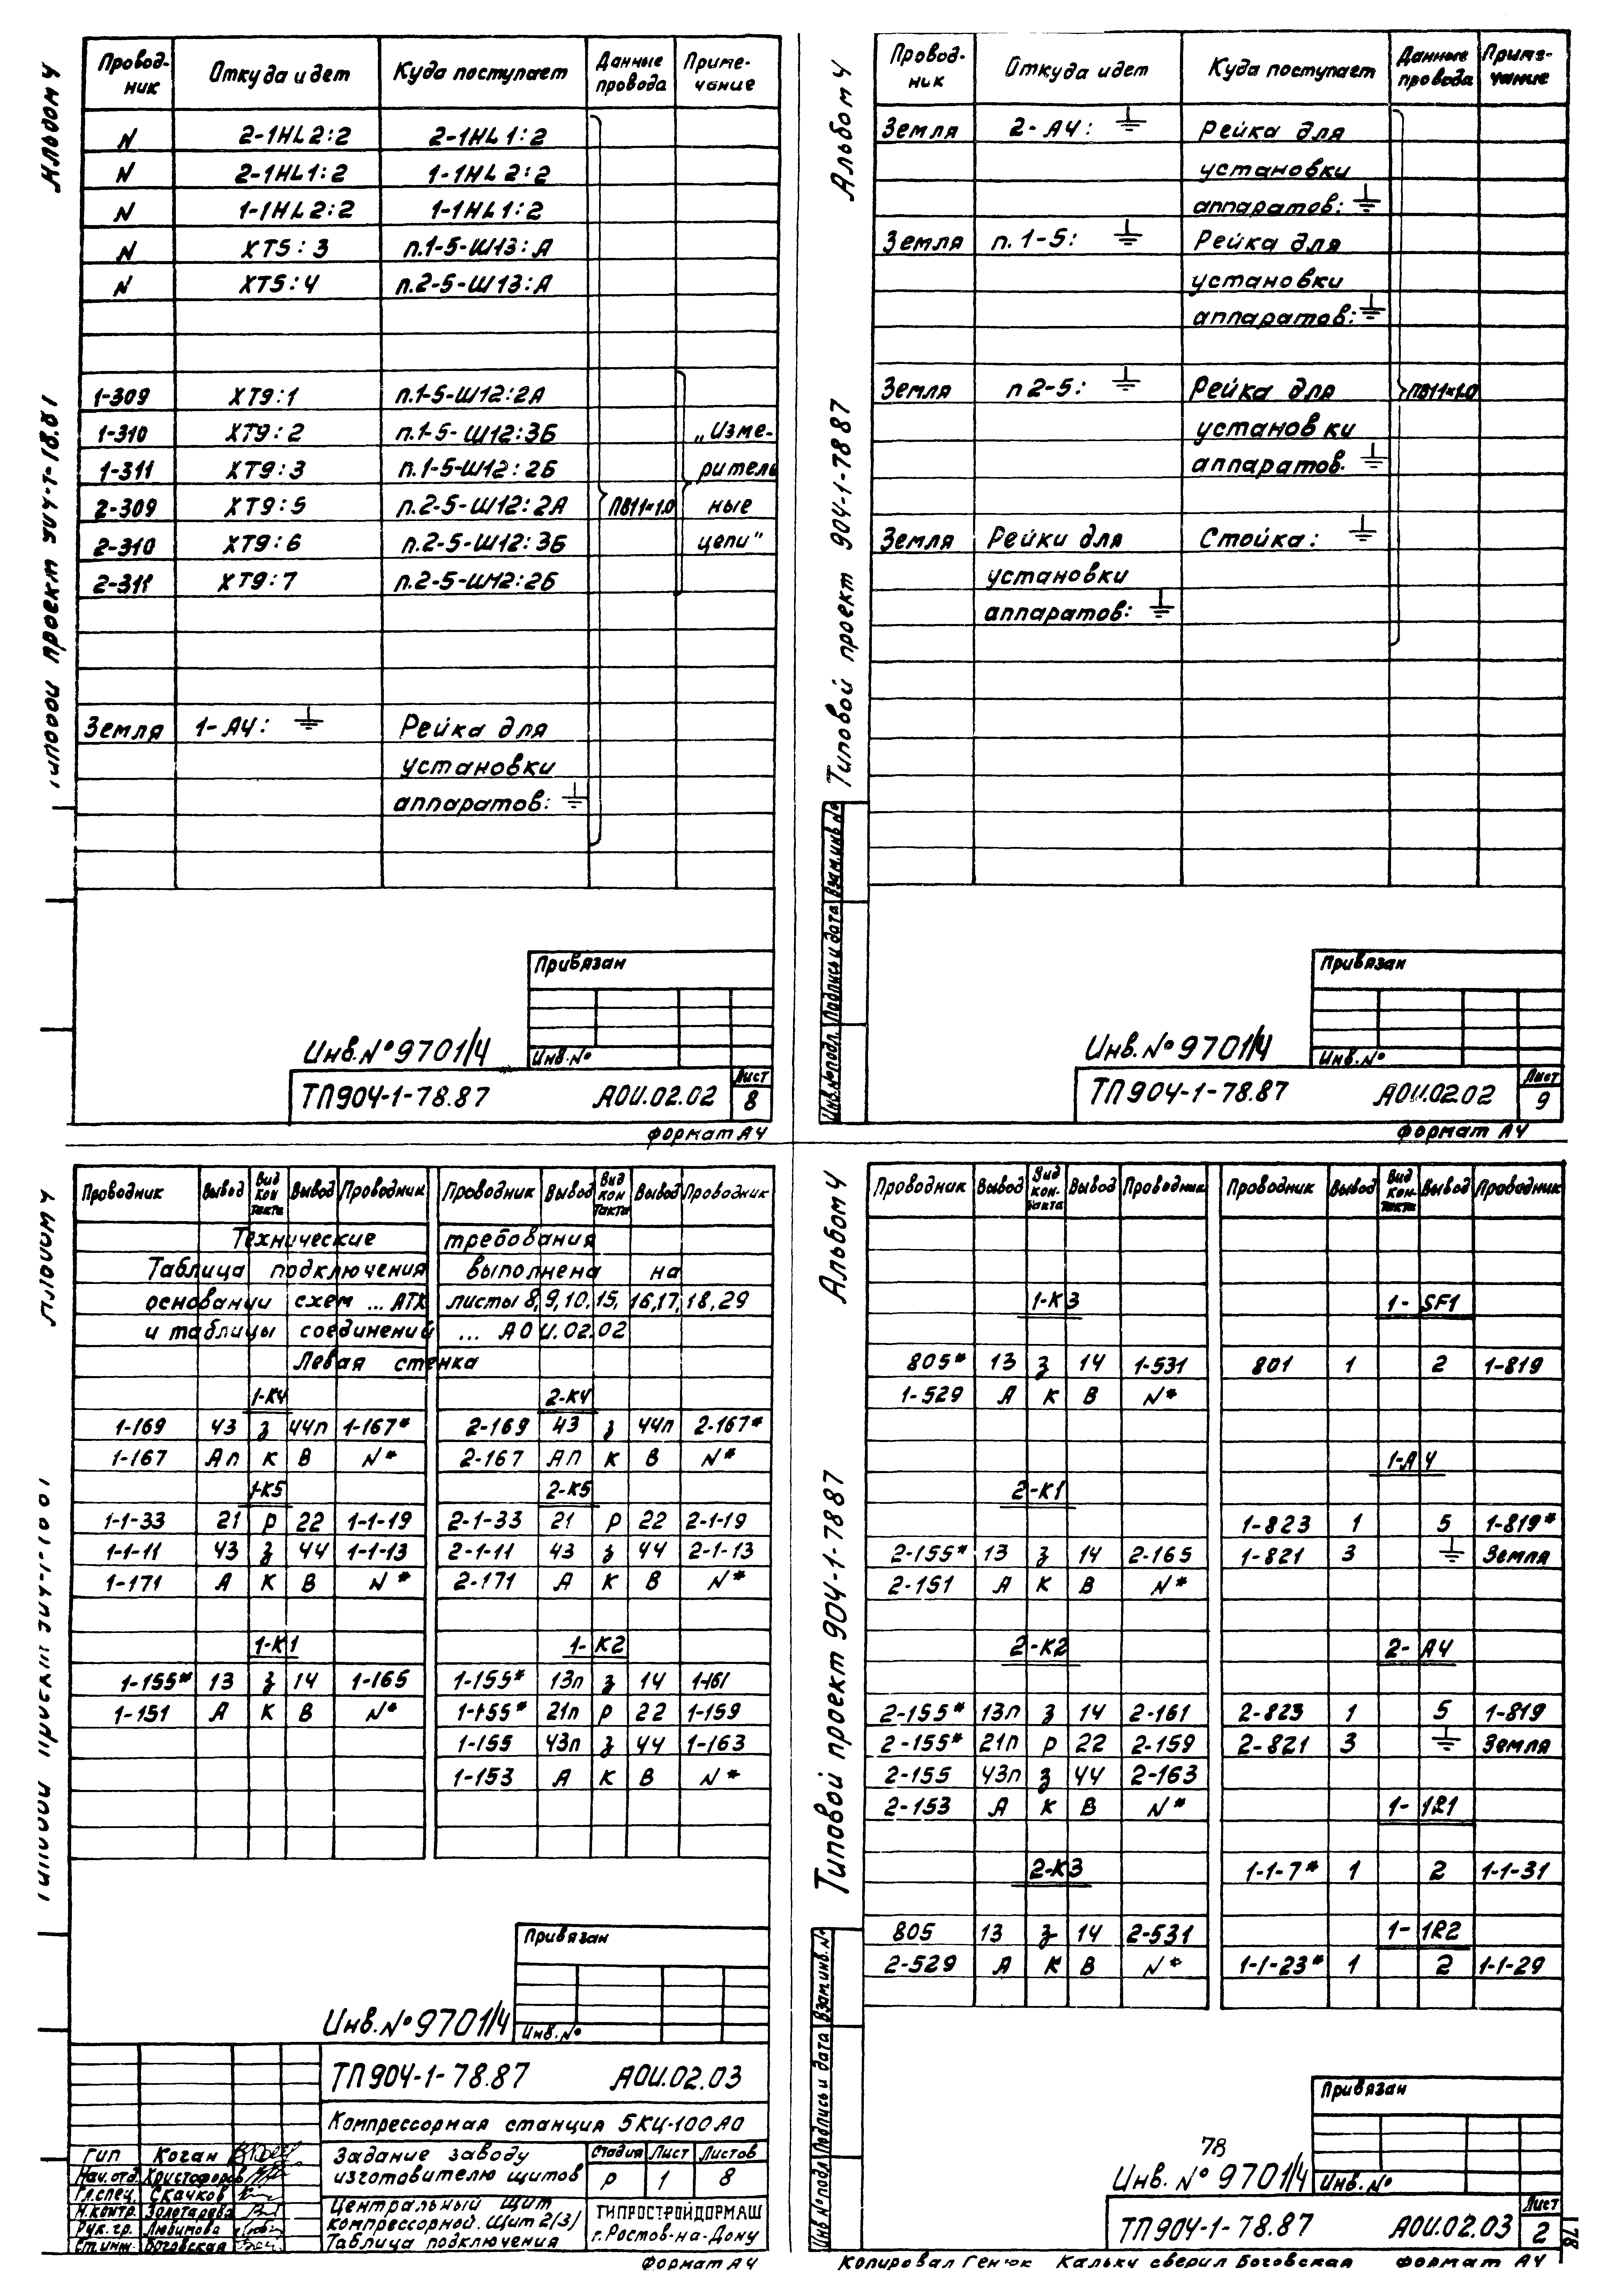 Альбом 4
Типовой проект 904-1-78.87
Провод-ник Откуда идет Куда поступает Данные провода Приме-чание
N 2-1HL2:2 2-1HL1:2
N 2-1HL1:2 1-1HL2:2
N 1-1HL2:2 1-1HL1:2
N XT5:3 п.1-5-Ш13:А
N XT5:4 п.2-5-Ш13:А
1-309 XT9:1 п.1-5-Ш12:2А
1-310 XT9:2 п.1-5-Ш12:3Б „Изме-
1-311 XT9:3 п.1-5-Ш12:2Б ритель
2-309 XT9:5 п.2-5-Ш12:2А ПВ11×1.0 ные
2-310 XT9:6 п.2-5-Ш12:3Б цепи"
2-311 XT9:7 п.2-5-Ш12:2Б
Земля 1-А4: ⏚ Рейка для
установки
аппаратов: ⏚
Привязан
Инв.№
Инв.№9701/4
ТП904-1-78.87 АОИ.02.02 Лист 8
формат А4
Альбом 4
Типовой проект 904-1-78 87
Провод-ник Откуда идет Куда поступает Данные провода Приме-чание
Земля 2-А4: ⏚ Рейка для
установки
аппаратов: ⏚
Земля п.1-5: ⏚ Рейка для
установки
аппаратов: ⏚
Земля п2-5: ⏚ Рейка для ПВ11×1.0
установки
аппаратов. ⏚
Земля Рейки для Стойка: ⏚
установки
аппаратов: ⏚
Инв.№подл. Подпись и дата Взам.инв №
Привязан
Инв.№
Инв.№9701/4
ТП904-1-78.87 АОИ.02.02 Лист 9
формат А4
Проводник Вывод Вид контакта Вывод Проводник Проводник Вывод Вид контакта Вывод Проводник
Технические требования
Таблица подключения выполнена на
основании схем ... АТХ листы 8,9,10,15,16,17,18,29
и таблицы соединений ... АОИ.02.02
Левая стенка
1-К4 2-К4
1-169 43 з 44п 1-167* 2-169 43 з 44п 2-167*
1-167 Ап К В N* 2-167 Ап К В N*
1-К5 2-К5
1-1-33 21 Р 22 1-1-19 2-1-33 21 Р 22 2-1-19
1-1-11 43 з 44 1-1-13 2-1-11 43 з 44 2-1-13
1-171 А К В N* 2-171 А К В N*
1-К1 1-К2
1-155* 13 з 14 1-165 1-155* 13п з 14 1-161
1-151 А К В N* 1-155* 21п Р 22 1-159
1-155 43п з 44 1-163
1-153 А К В N*
Привязан
Инв.№
Инв.№9701/4
ТП904-1-78.87 АОИ.02.03
Компрессорная станция 5КЦ-100АО
Гип Коган
Нач.отд. Христофоров
Гл.спец. Скачков
Н.контр. Золотарева
Рук.гр. Любимова
Ст.инж. Боговская
Задание заводу изготовителю щитов
Стадия Лист Листов
Р 1 8
Центральный щит компрессорной. Щит 2(3) Таблица подключения
ГИПРОСТРОЙДОРМАШ
г.Ростов-на-Дону
Формат А4
Альбом 4
Типовой проект 904-1-78 87
Проводник Вывод Вид контакта Вывод Проводник Проводник Вывод Вид контакта Вывод Проводник
1-К3 1-SF1
805* 13 з 14 1-531 801 1 2 1-819
1-529 А К В N*
1-А4
2-К1
1-823 1 5 1-819*
2-155* 13 з 14 2-165 1-821 3 ⏚ Земля
2-151 А К В N*
2-К2 2-А4
2-155* 13п з 14 2-161 2-823 1 5 1-819
2-155* 21п Р 22 2-159 2-821 3 ⏚ Земля
2-155 43п з 44 2-163
2-153 А К В N* 1-1R1
2-К3 1-1-7* 1 2 1-1-31
805 13 з 14 2-531 1-1R2
2-529 А К В N* 1-1-23* 1 2 1-1-29
Инв №подл Подпись и дата Взам.инв.№
Привязан
Инв.№
78
Инв. №9701/4
ТП904-1-78.87 АОИ.02.03 Лист 2
Копировал Генюк Кальку сверил Боговская Формат А4